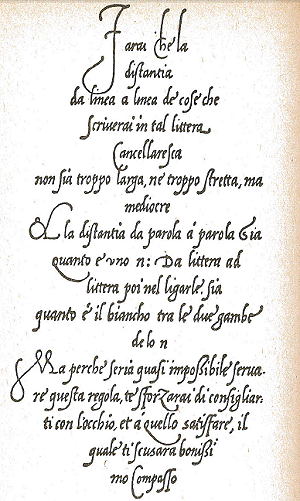 Farai che la
distantia
da linea a linea de cose che
scriverai in tal littera
Cancellaresca
non sia troppo larga, ne troppo stretta, ma
mediocre
E la distantia da parola a parola sia
quanto e uno n: Da littera ad
littera poi nel ligarle. sia
quanto é il biancho tra le due gambe
de lo n
Ma perche seria quasi impoßibile serva-
re questa regola, te sforzarai di consigliar-
ti con l'occhio, et a quello satisfare, il
quale ti scusara bonißi
mo Compasso